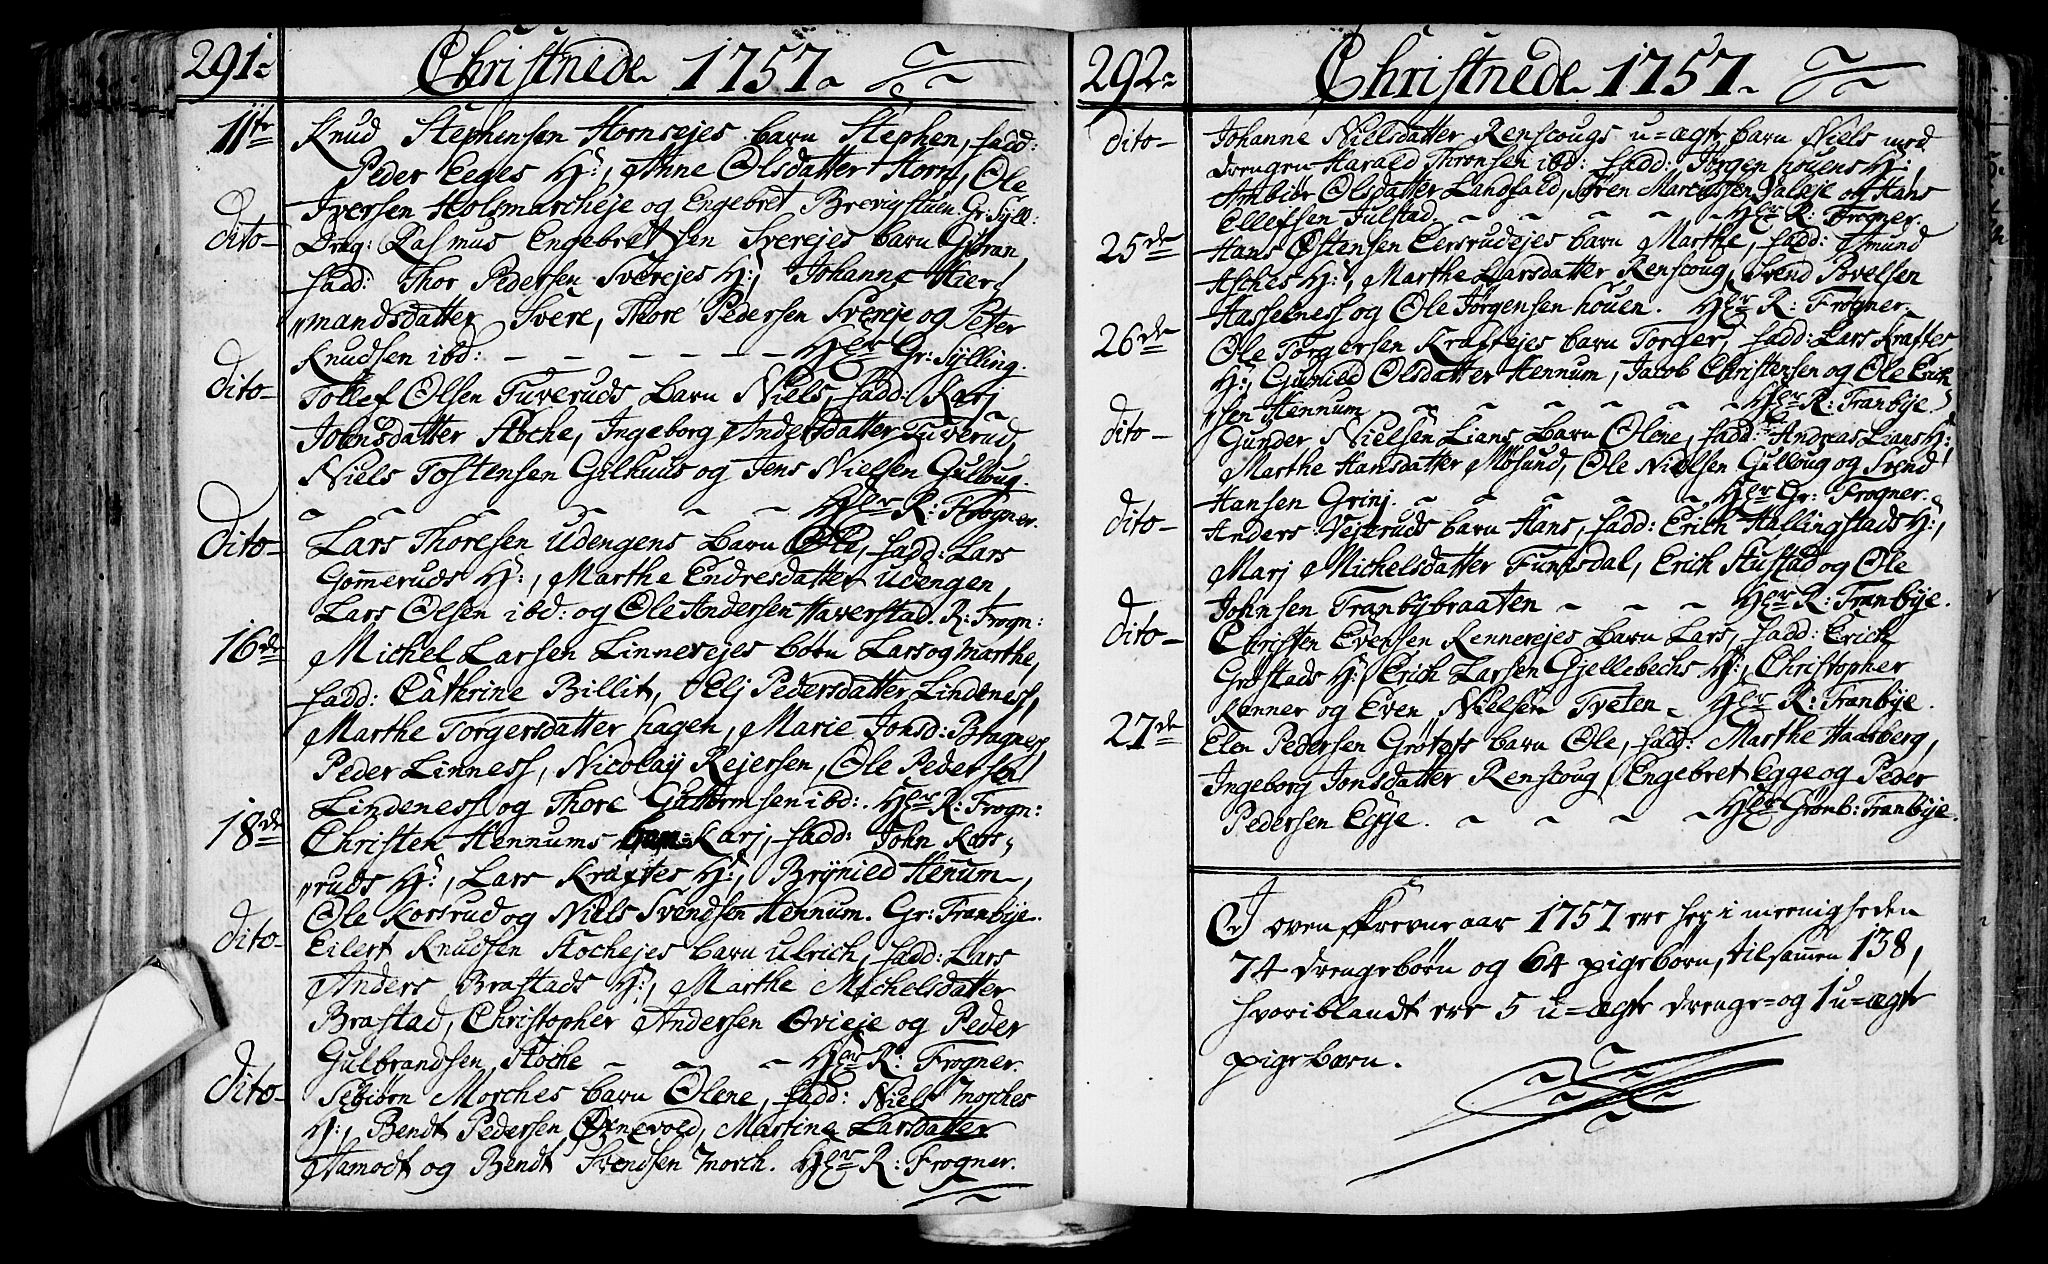 291.
Christnede 1757.
11te Knud Stephensen Hornsejes barn Stephen, fadd:
Peder Eeges H:, Anne Olsdatter Horn, Ole
Iversen Holsmarcheje og Engebret Brevigstuen Gr: Sÿll:
dito- Drag: Rasmus Engebretsen Sverejes barn Gjöran,
fadd: Thor Pedersen Sverejes H:, Johanne Hier,
"mandsdatter Svere, Thore Pedersen Svereje og Peter
Knudsen ibd: - - - - - - - Her Gr: Sÿlling.
dito- Tollef Olsen Tuveruds barn Niels, fadd: Karj
Johnsdatter Stoche, Ingeborg Andersdatter Tuverud,
Niels Tostensen Gilhuus og Jens Nielsen Gulloug.
Her R: Frogner.
Dito- Lars Thoresen Udengens barn Ole, fadd: Lars
Gom̄eruds H:, Marthe Endresdatter Udengen
Lars Olsen ibd: og Ole Andersen Haverstad. R: Frogn:
16de Michel Larsen Linnesejes börn Lars og Marthe,
fadd: Cathrine Billit, Elj Pedersdatter Lindeness,
Marthe Torgersdatter hagen, Marie Jonsd: Bragness
Peder Linness, Nicolaÿ Rejersen, Ole Pedersen
Lindeness og Thore Guttormsen ibd:. Her R: Frogn:
18de Christen Hennums barn Karj, fadd: John Kors,
"ruds H:, Lars Kraftes H:, Brÿnild Henum,
Ole Korsrud og Niels Svendsen Hennum. Gr: Tranbÿe.
dito- Eilert Knudsen Stochejes barn Ulrich, fadd: Lars
Anders Brastads H:, Marthe Michelsdatter
Brastad, Christopher Andersen Ovieje og Peder
Gulbrandsen Stoche - - - Her R: Frogner.
dito- Sebiörn Morches barn Olene, fadd: Niels Morches
H:, Bendt Pedersen Ornevold, Martine Larsdatter
Aamodt og Bendt Svendsen Morch. Her R: Frogner.
292.
Christnede 1757.
dito- Johanne Nielsdatter Renscougs u=ægte barn Niels med
drengen Harald Thronsen ibd: fadd: Jörgen houens H:,
Ambiör Olsdatter Landfald, Sören Marcussen Valeje og Hans
Ellefsen Julstad - - - - - Her R: Frogner.
25de Hans Östensen Eersrudejes barn Marthe, fadd: Amund
Asches H:, Marthe Larsdatter Renscoug, Svend Povelsen
Hasselness og Ole Jörgensen houen. Her R: Frogner.
26de Ole Torgersen Kraftejes barn Torger, fadd: Lars Kraftes
H:, Gunild Olsdatter Hennum, Jacob Christensen og Ole Erich
"sen Hennum - - - - - - Her R: Tranbÿe.
dito- Gunder Nielsen Lians barn Olene, fadd: Andreas Lians H:,
Marthe Hansdatter Mösund, Ole Nielsen Gulloug og Svend
Hansen Grinj. - - - - - Her Gr: Frogner.
dito- Anders Vejeruds barn Hans, fadd: Erich Hallingstads H:,
Marj Michelsdatter Funtsdal, Erich Hustad og Ole
Johnsen Tranbybraaten - - - Her R: Tranbÿe.
dito- Christen Evensen Rennerejes barn Lars, fadd: Erich
Gröstads H:, Erich Larsen Gjellebechs H:, Christopher
Renner og Even Nielsen Tveten - Her R: Tranbÿe.
27de Elen Pedersen Grötets barn Ole, fadd: Marthe Haasberg,
Ingeborg Jonsdatter Renscoug, Engebret Egge og Peder
Pedersen Egge. - - - - Her Grönb: Tranbÿe.
I ovenskrevne aar 1757 ere her i meenigheden
74 drengebörn og 64 pigebörn, tilsam̄en 138,
hvoriblandt ere 5 u=ægte drenge= og 1 u=ægte
pigebarn.